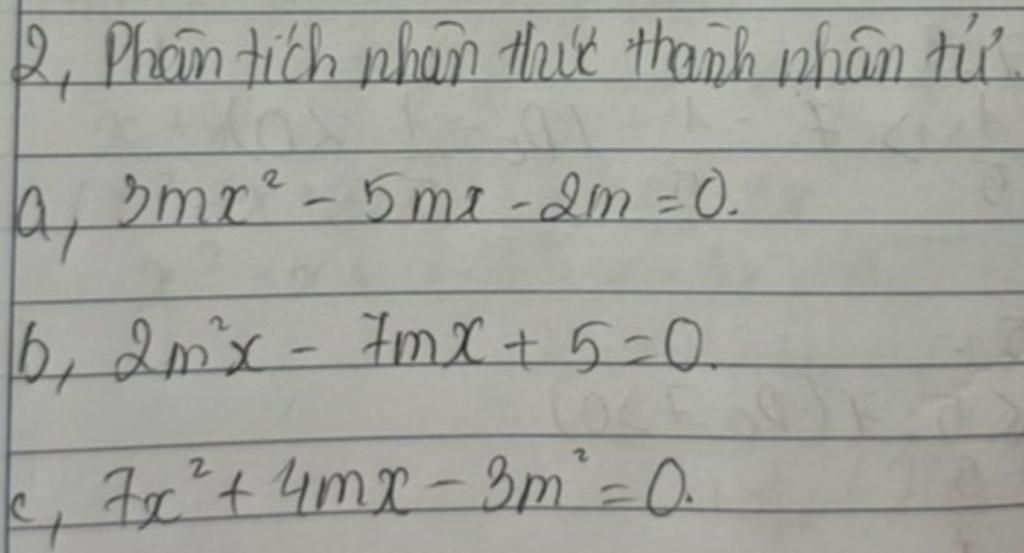 2, Phân tích nhân thức thành nhân tử.
a, 3mx² - 5mx - 2m = 0.
b, 2m²x - 7mx + 5 = 0.
c, 7x² + 4mx - 3m² = 0.